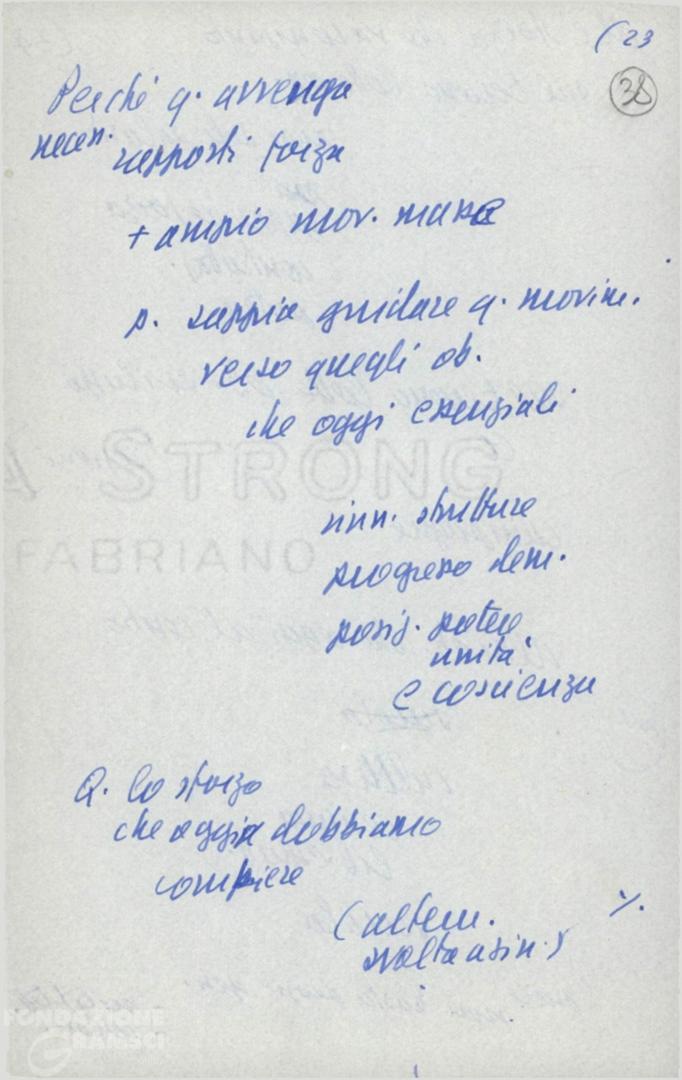 (23
38
Perché q. avvenga
necess. rapporti forza
+ ampio mov. massa
p. sappia guidare q. movim.
verso quegli ob.
che oggi essenziali
STRONG
FABRIANO
rinn. strutture
progresso dem.
posiz. potere
unità
e coscienza
Q. lo sforzo
che oggi dobbiamo
compiere
(altern.
svolta a sin.)
%.
FONDAZIONE
GRAMSCI